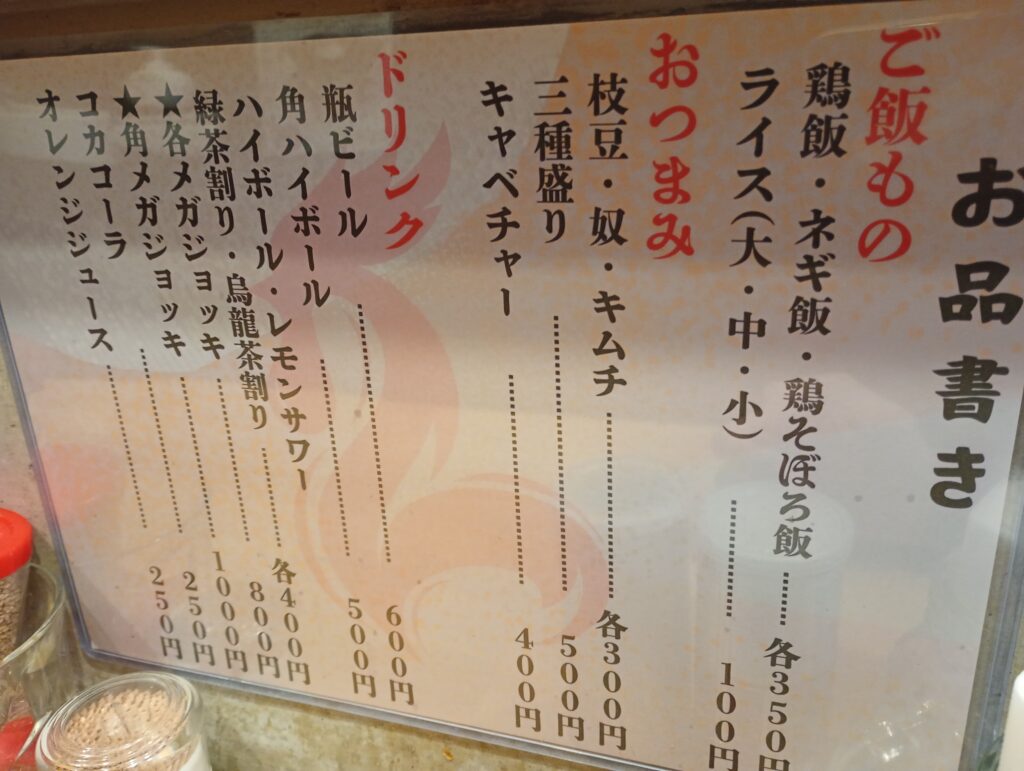 お品書き
ご飯もの
鶏飯・ネギ飯・鶏そぼろ飯 ……… 各350円
ライス(大・中・小) ……… 100円
おつまみ
枝豆・奴・キムチ ……… 各300円
三種盛り ……… 500円
キャベチャー ……… 400円
ドリンク
瓶ビール ……… 600円
角ハイボール ……… 500円
ハイボール・レモンサワー
緑茶割り・烏龍茶割り ……… 各400円
★各メガジョッキ ……… 800円
★角メガジョッキ ……… 1000円
コカコーラ ……… 250円
オレンジジュース ……… 250円